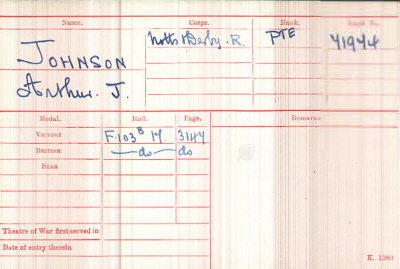 Name. Corps. Rank. Regtl. No.
JOHNSON Notts & Derby. R. PTE 71974
Arthur. J.
Medal. Roll. Page. Remarks.
VICTORY F/103 B 17. 3147
BRITISH —do— do
STAR
Theatre of War first served in
Date of entry therein
K. 1380